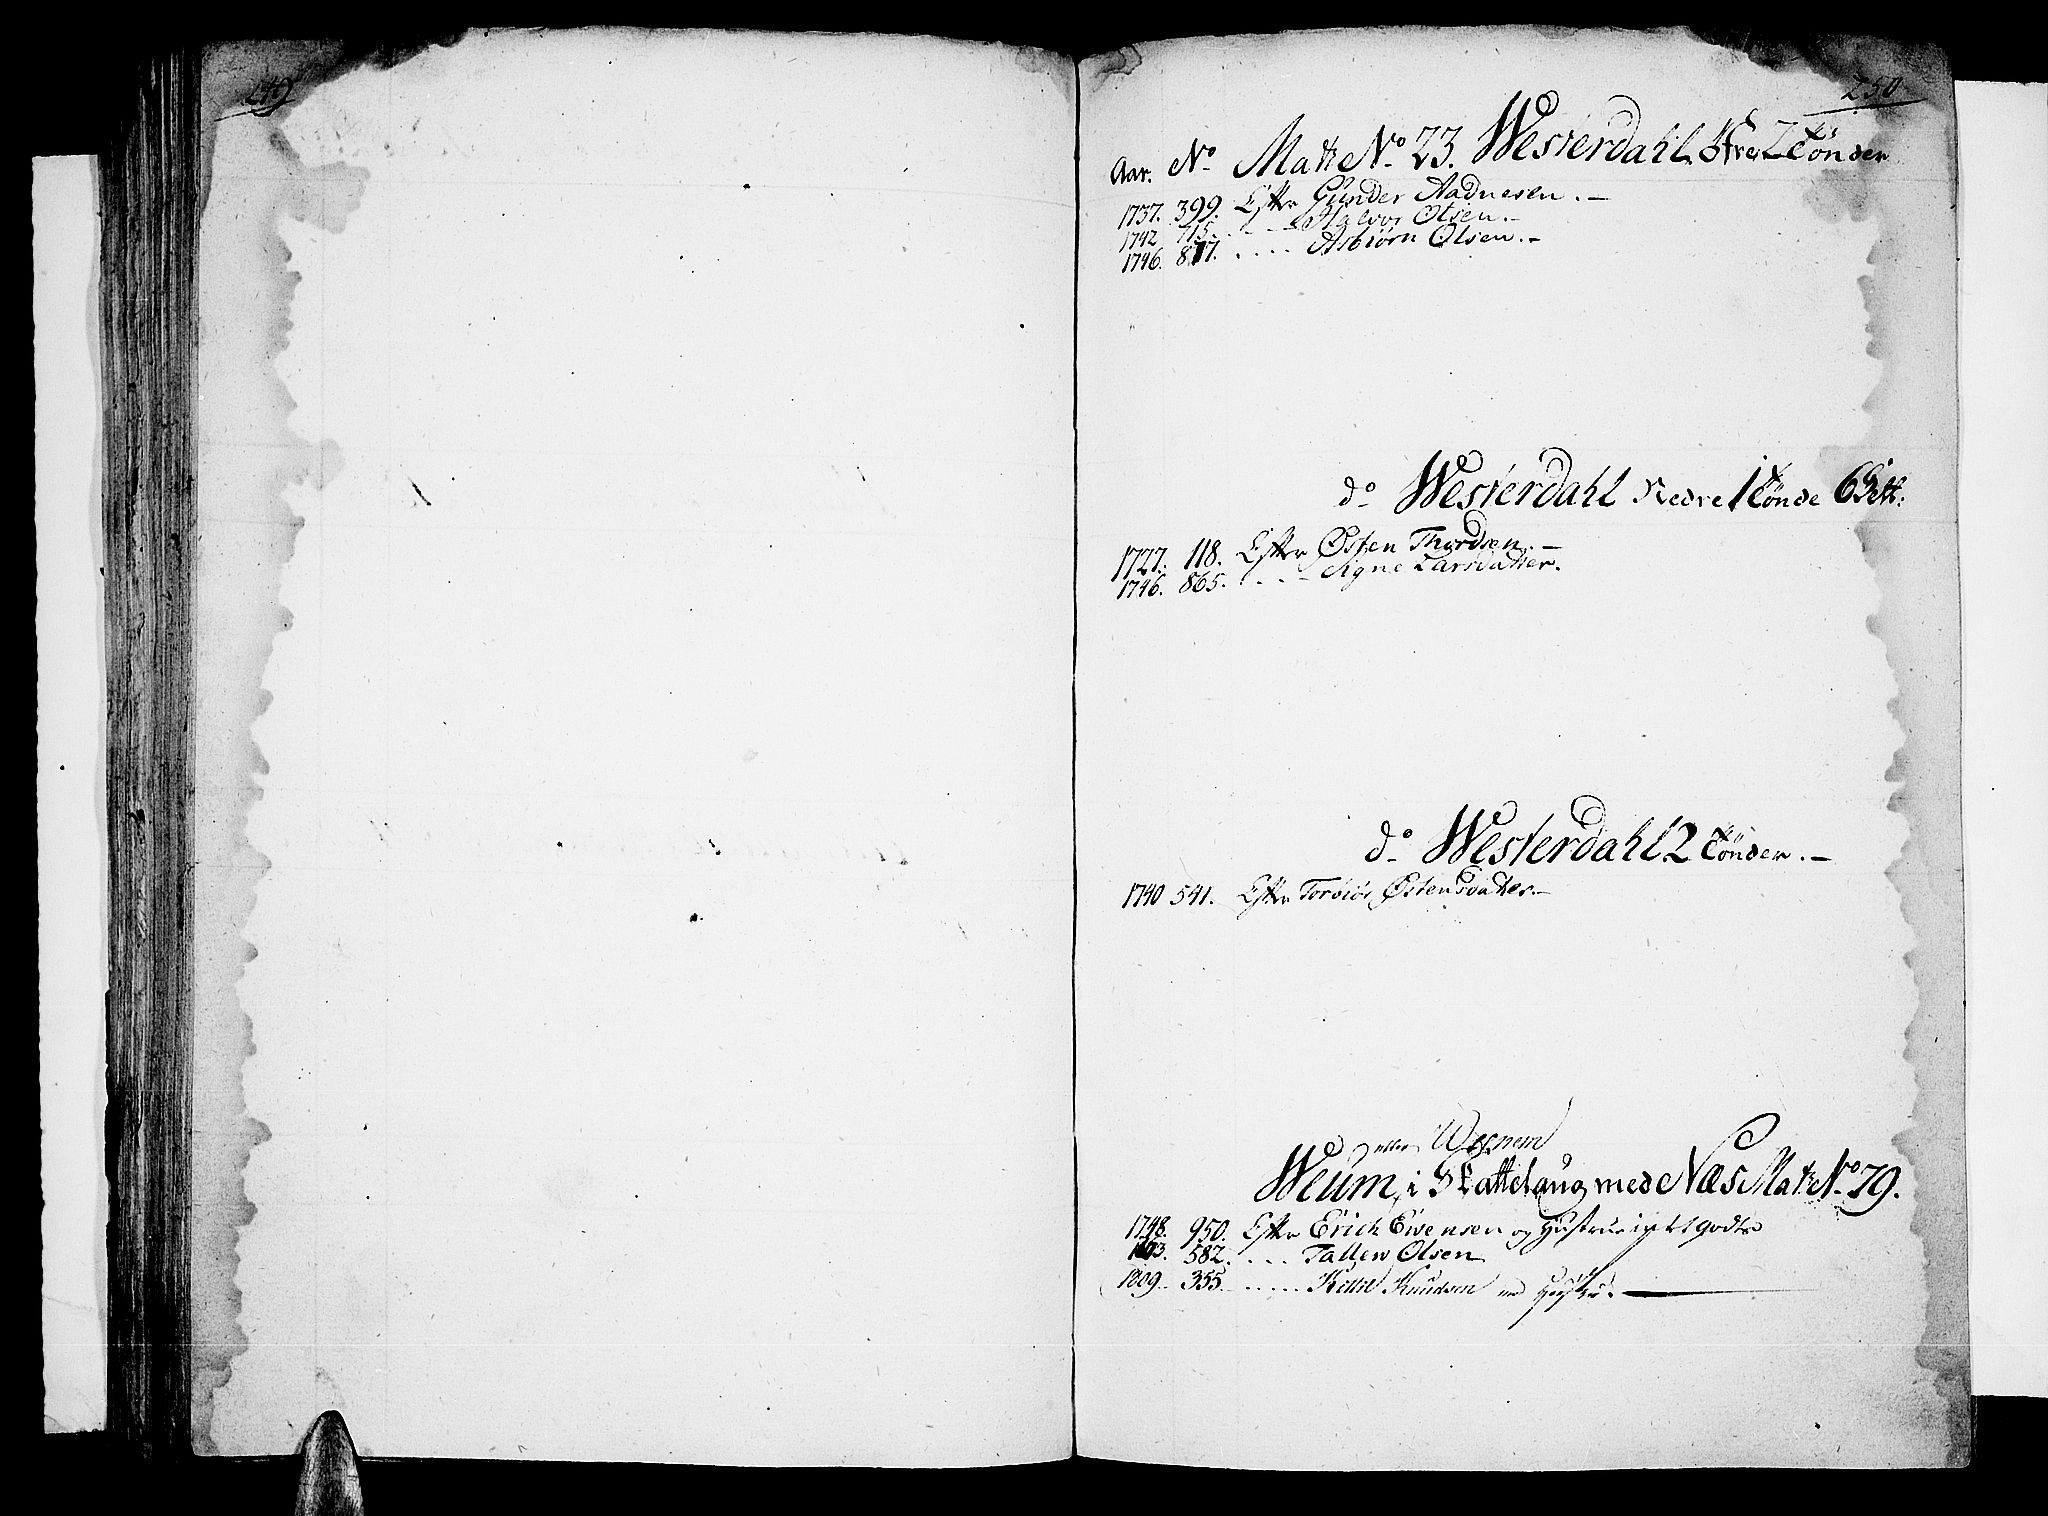 249
250
Aar. No. Matr No. 23. Westerdahl Øvre 2 Tönder
1737. 399. Efter Gunder Aadnesen. —
1742 715. - - - Halvor Olsen. -
1746. 877. .... Asbiørn Olsen. -
do Westerdahl Nedre 1 Tönde 6 Sett:
1727. 118. Efter Østen Thordsen. —
1746. 865. . . - - Signe Larsdatter.
do Westerdahl 2 Tönder. —
1740 541. Efter Østensdatter. —
eller
Weum, i Skattelaug med Næs Matr No. 79.
1748. 950. Efter Erich Evensen og Hustrue godts
582. ... Tallew Olsen
1809 355 ..... Kittil Knudsen